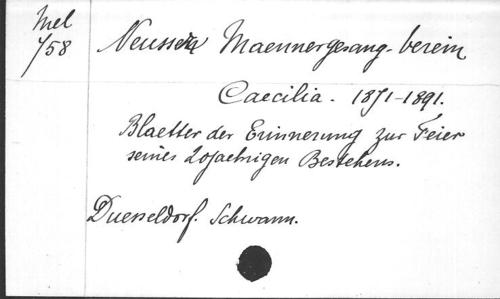 Mel
/58
Neusser Maennergesang-verein
Caecilia. 1871-1891.
Blaetter der Erinnerung zur Feier
seines 20jaehrigen Bestehens.
Duesseldorf. Schwann.